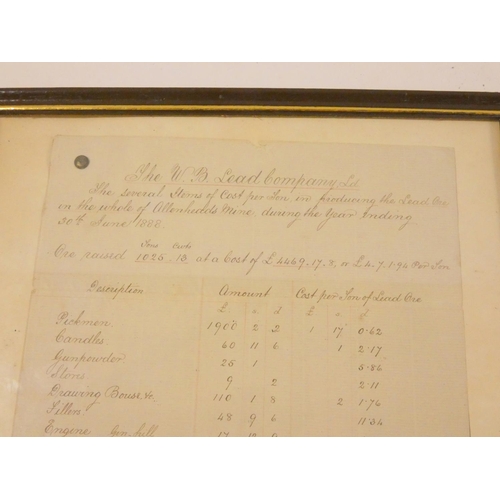 The W. B. Lead Company Ld
The several Items of Cost per Ton in producing the Lead Ore
in the whole of Allenheads Mine, during the Year Ending
30th June 1888
Tons Cwts
Ore raised 1025 . 13 at a Cost of £4469 . 17 . 8, or £4 . 7 . 1.94 Per Ton
Description Amount Cost per Ton of Lead Ore
£ s d £ s d
Pickmen 1900 2 2 1 17 0.62
Candles 60 11 6 1 2.17
Gunpowder 25 1 5.86
9 2 2.11
Drawing Bouse, &c. 110 1 8 2 1.76
48 9 6 11.34
Engine